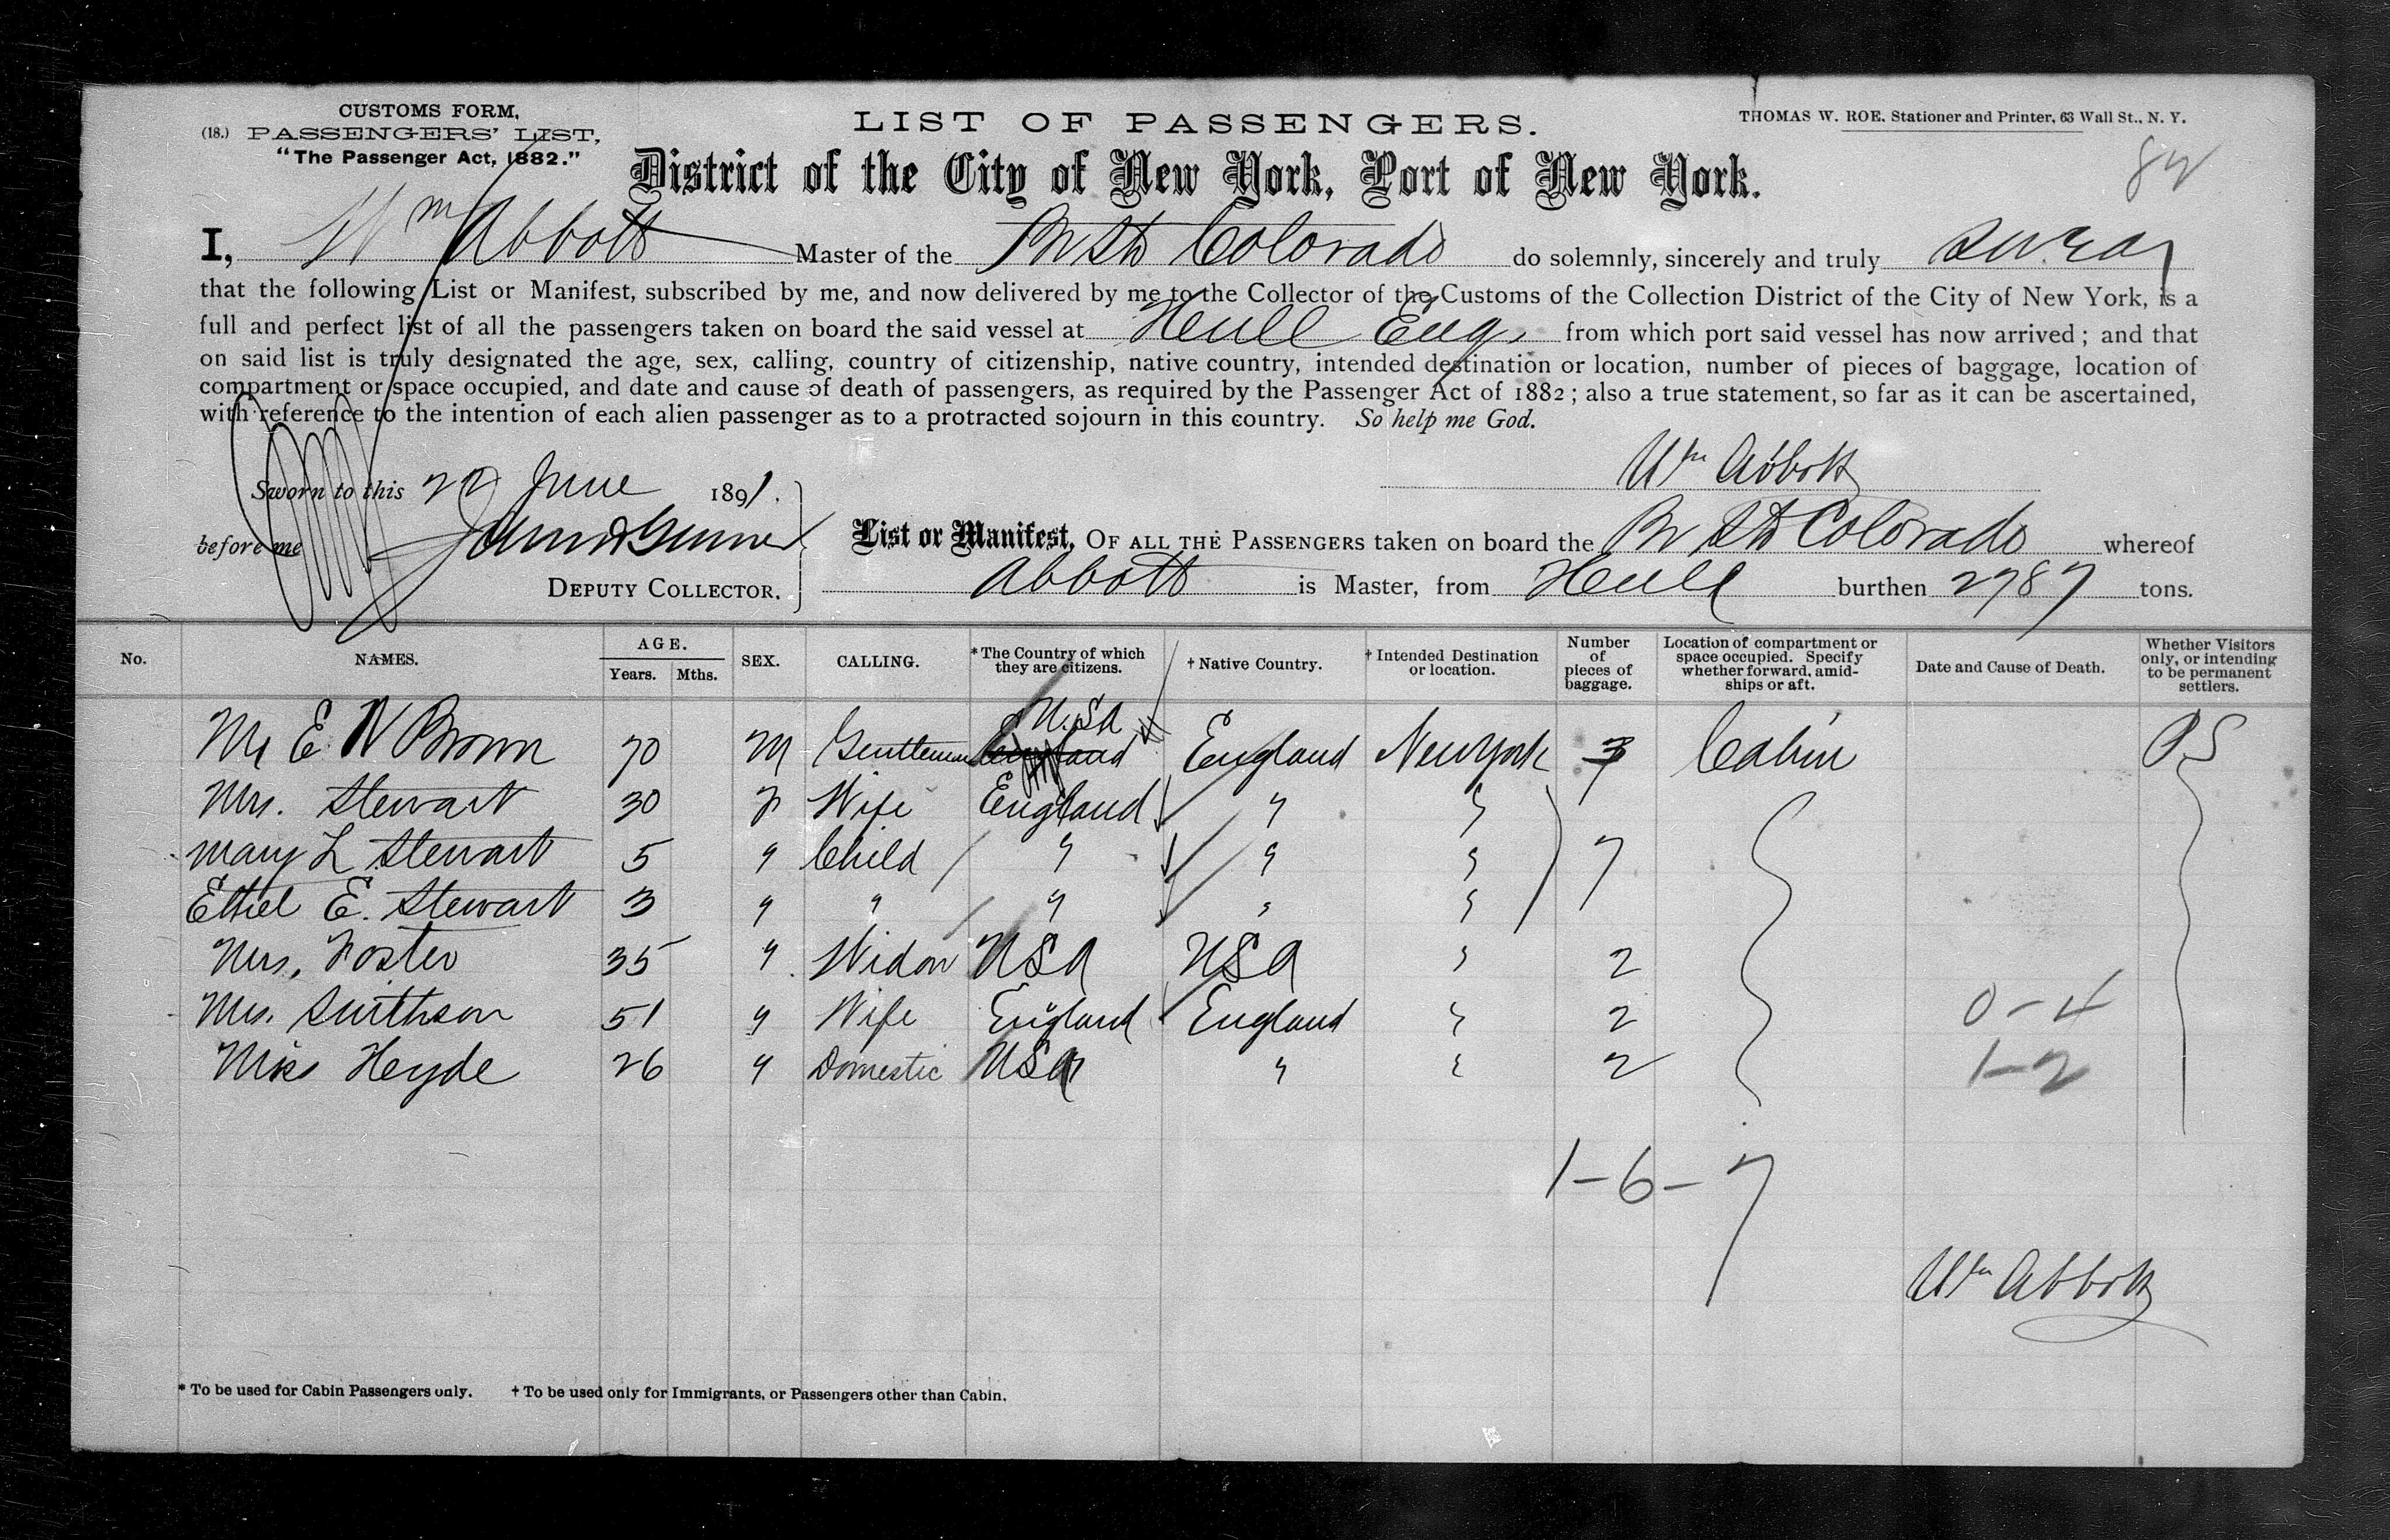 CUSTOMS FORM,
(18.) PASSENGERS' LIST,
"The Passenger Act, 1882."
LIST OF PASSENGERS.
THOMAS W. ROE. Stationer and Printer, 63 Wall St., N. Y.
District of the City of New York, Port of New York.
I, Wm Abbott Master of the Br Str Colorado do solemnly, sincerely and truly swear
that the following List or Manifest, subscribed by me, and now delivered by me to the Collector of the Customs of the Collection District of the City of New York, is a
full and perfect list of all the passengers taken on board the said vessel at Hull Eng. from which port said vessel has now arrived; and that
on said list is truly designated the age, sex, calling, country of citizenship, native country, intended destination or location, number of pieces of baggage, location of
compartment or space occupied, and date and cause of death of passengers, as required by the Passenger Act of 1882; also a true statement, so far as it can be ascertained,
with reference to the intention of each alien passenger as to a protracted sojourn in this country. So help me God.
Wm Abbott
Sworn to this 22 June 1891.
before me
DEPUTY COLLECTOR.
List or Manifest, OF ALL THE PASSENGERS taken on board the Br Str Colorado whereof
Abbott is Master, from Hull burthen 2787 tons.
No. NAMES. AGE. Years. Mths. SEX. CALLING. *The Country of which they are citizens. † Native Country. † Intended Destination or location. Number of pieces of baggage. Location of compartment or space occupied. Specify whether forward, amidships or aft. Date and Cause of Death. Whether Visitors only, or intending to be permanent settlers.
Mr E. W Brown 70 M Gentleman England U.S.A England New York 3 Cabin PS
Mrs. Stewart 30 F Wife England " "
Mary L Stewart 5 " Child " " " 7
Ethel E. Stewart 3 " " " " "
Mrs. Foster 35 " Widow USA USA " 2
Mrs. Smithson 51 " Wife England England " 2 0-4
Miss Heyde 26 " Domestic USA " " 2 1-2
1-6-7
Wm Abbott
* To be used for Cabin Passengers only. † To be used only for Immigrants, or Passengers other than Cabin.